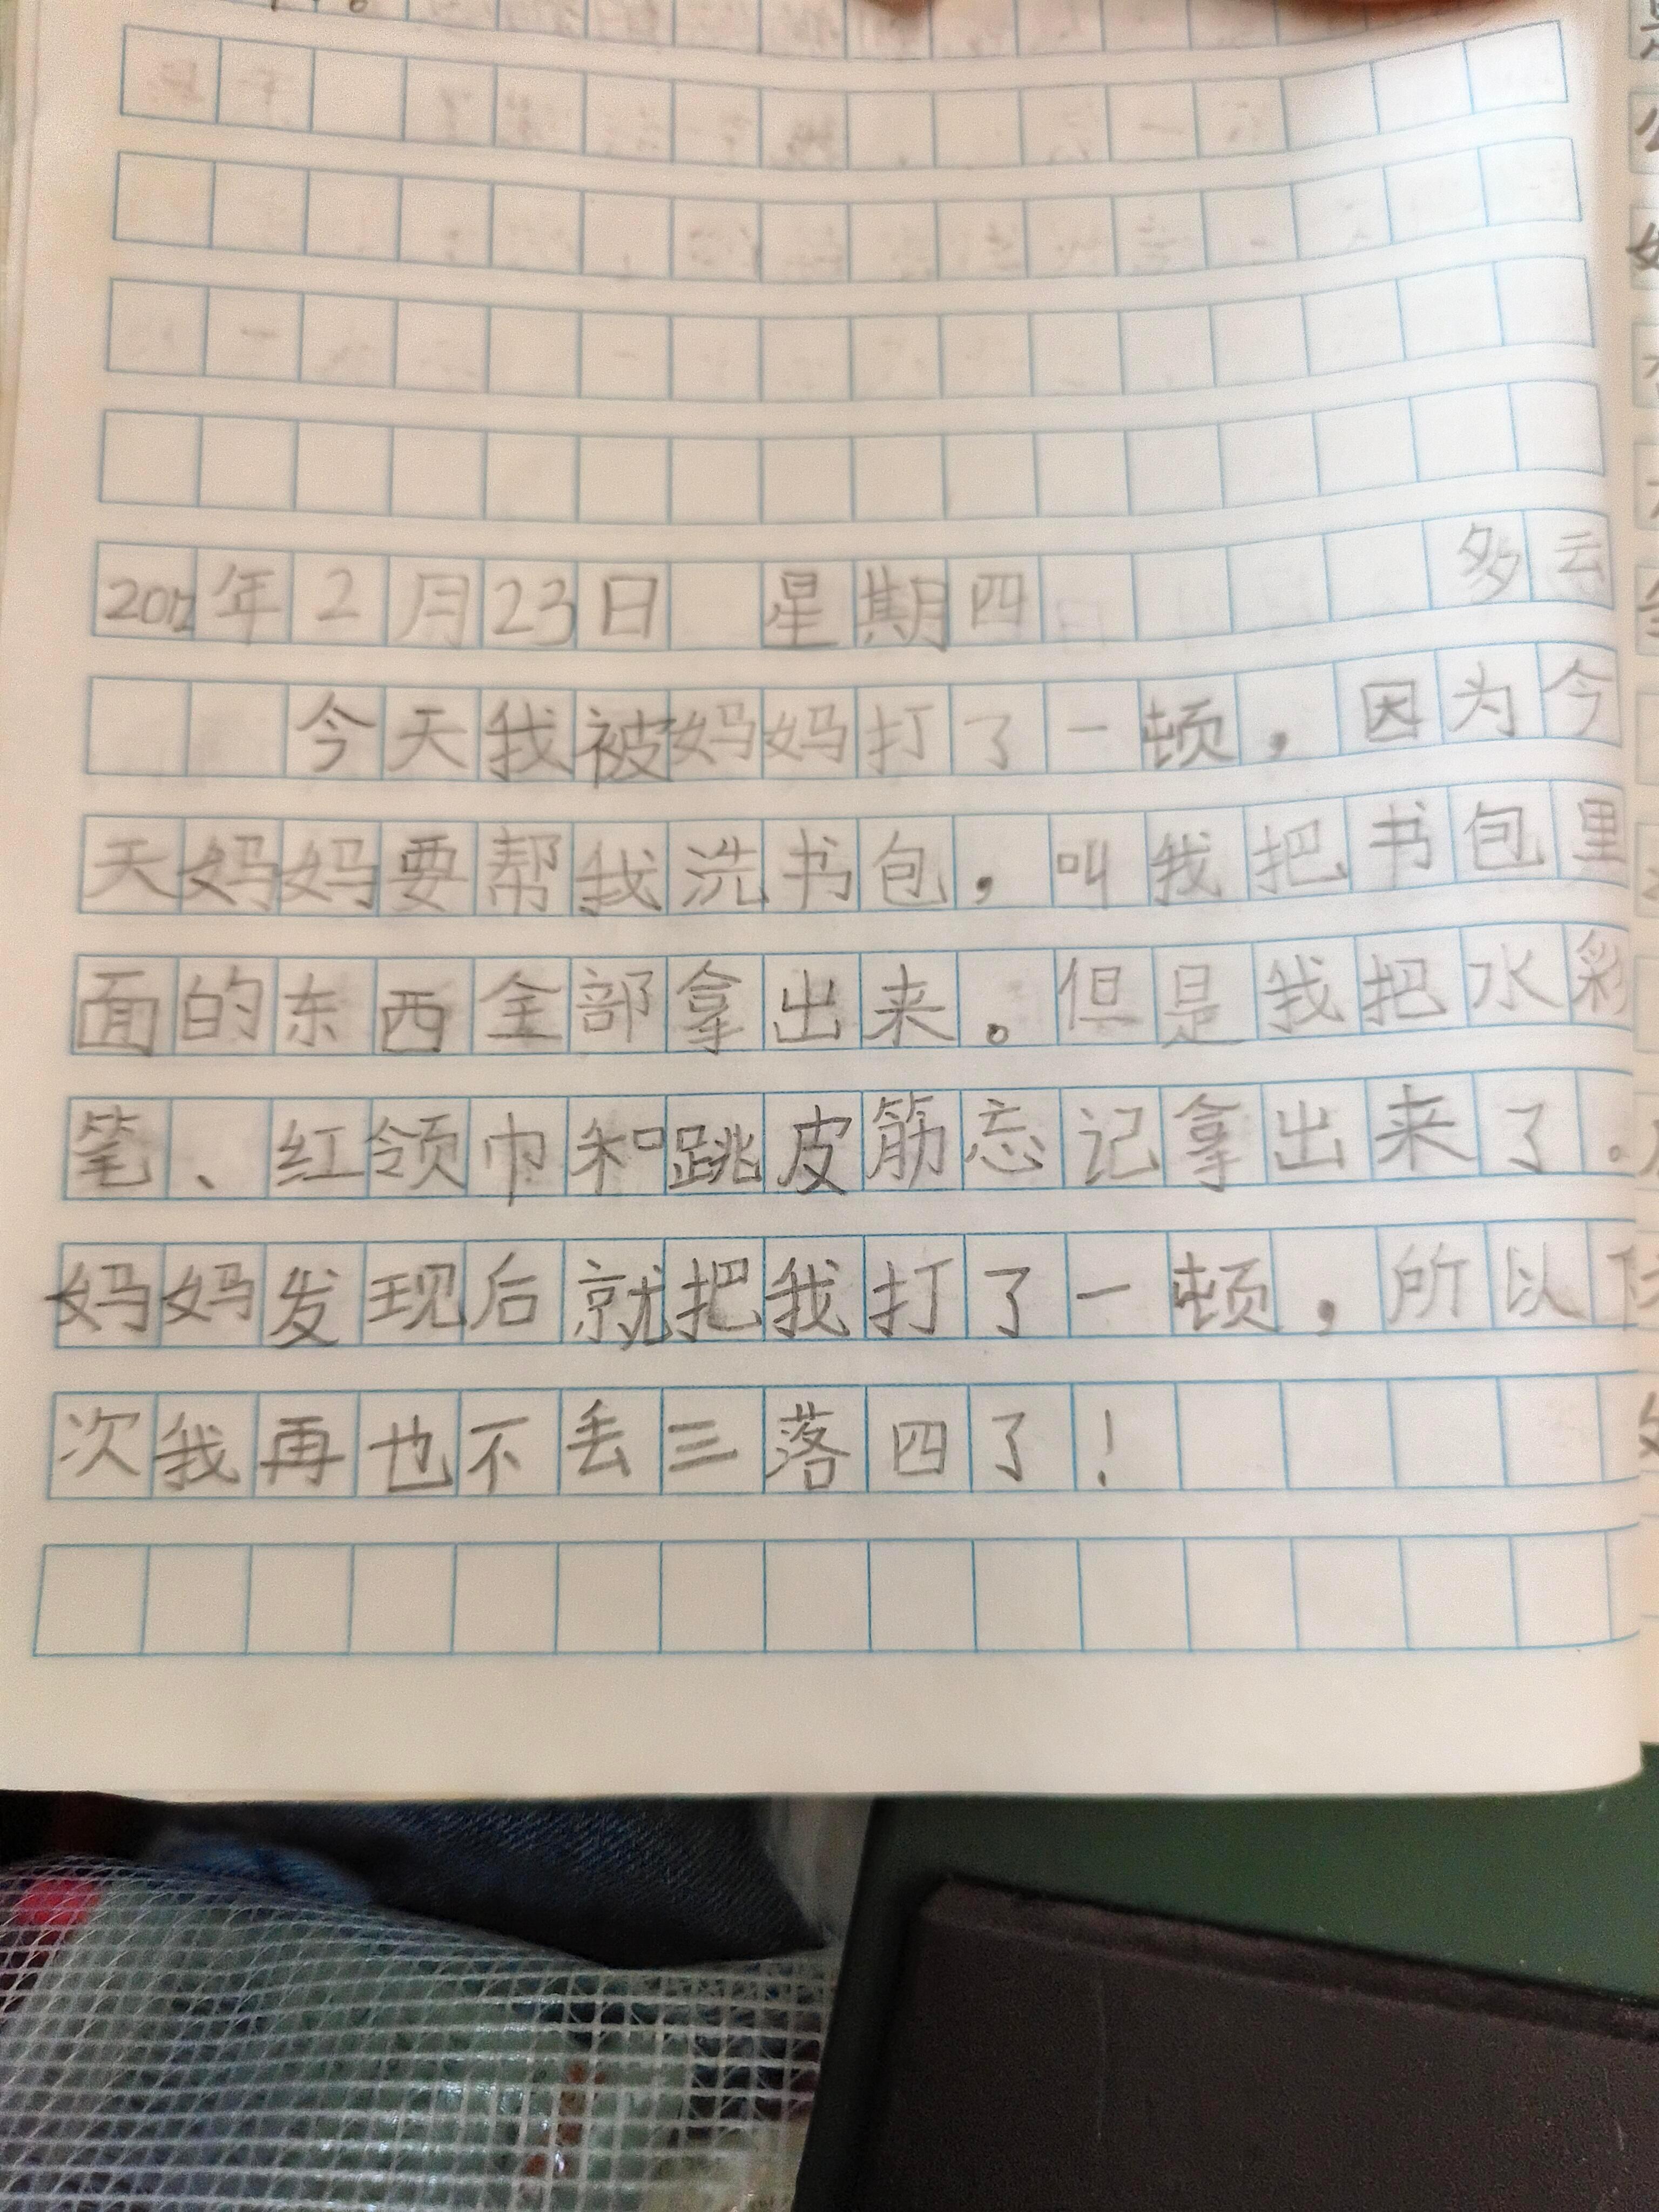 2012年2月23日 星期四 多云
今天我被妈妈打了一顿，因为今
天妈妈要帮我洗书包，叫我把书包里
面的东西全部拿出来。但是我把水彩
笔、红领巾和跳皮筋忘记拿出来了。
妈妈发现后就把我打了一顿，所以下
次我再也不丢三落四了！